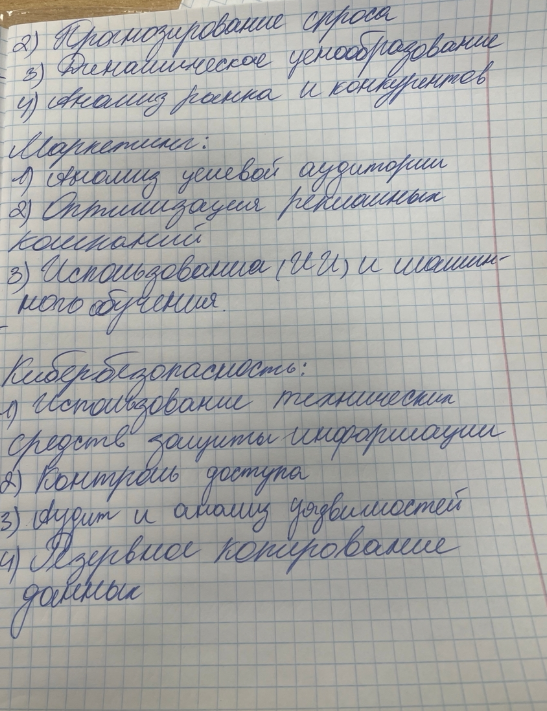 2) Прогнозирование спроса
3) Динамическое ценообразование
4) Анализ рынка и конкурентов
Маркетинг:
1) Анализ целевой аудитории
2) Оптимизация рекламных
компаний
3) Использования (ИИ) и машин-
ного обучения.
Кибербезопасность:
1) Использование технических
средств защиты информации
2) Контроль доступа
3) Аудит и анализ уязвимостей
4) Резервное копирование
данных